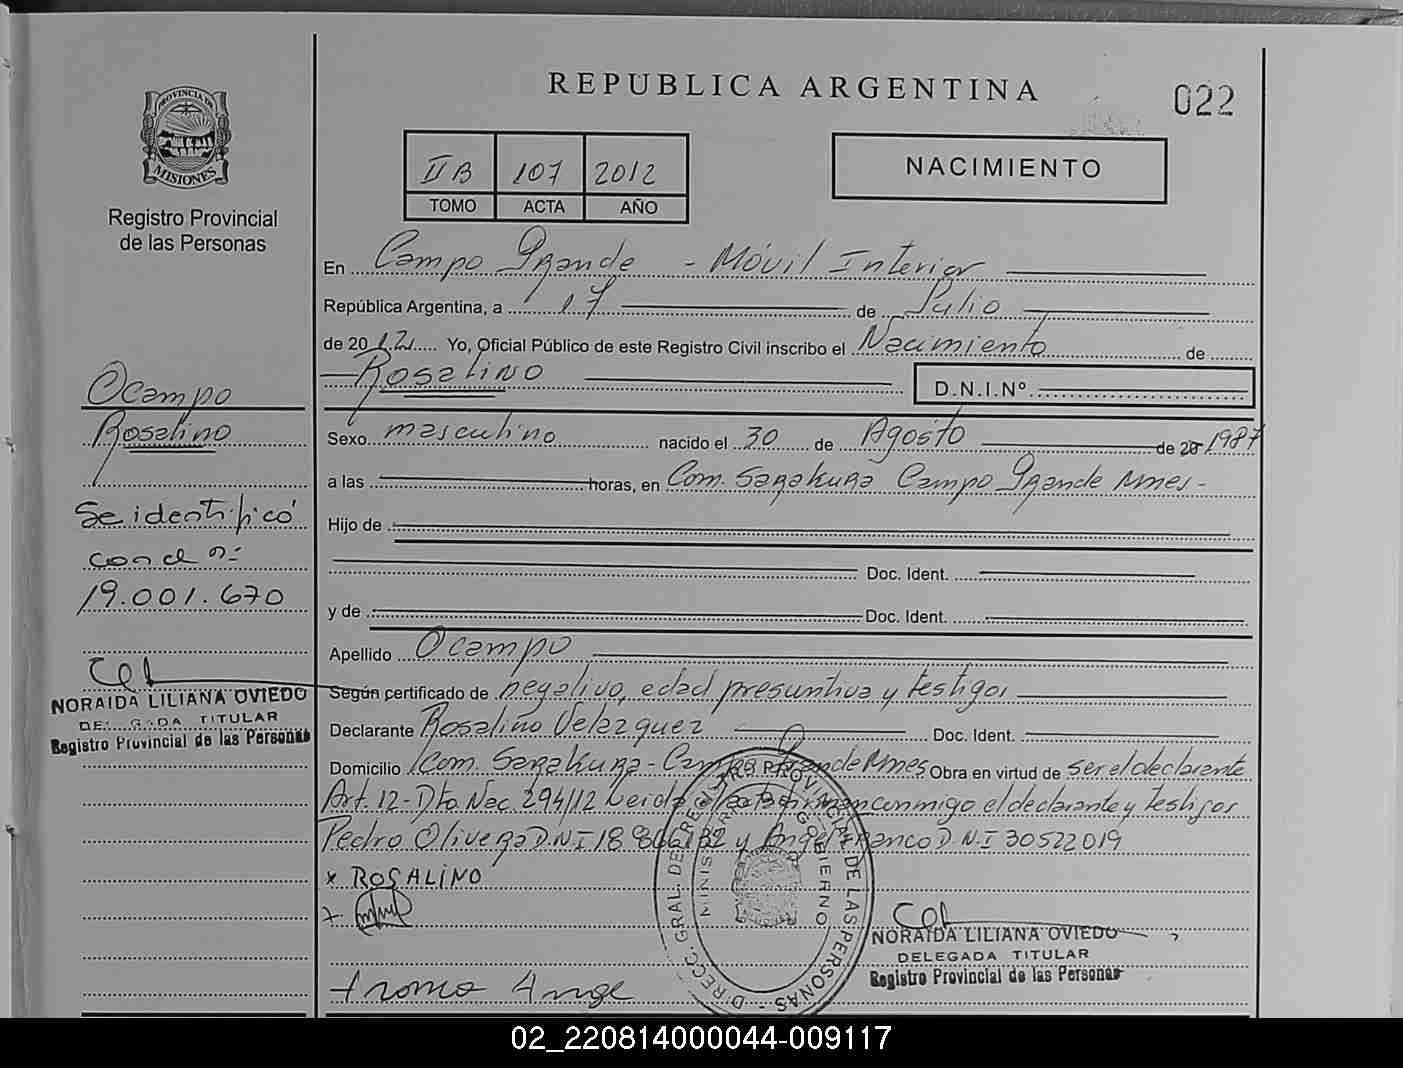 REPUBLICA ARGENTINA
022
PROVINCIA DE
MISIONES
Registro Provincial
de las Personas
II B 107 2012
TOMO ACTA AÑO
NACIMIENTO
En Campo Grande - Móvil Interior
República Argentina, a 17 de Julio
de 2012 Yo, Oficial Público de este Registro Civil inscribo el Nacimiento de
Rosalino
D.N.I.Nº
Sexo masculino nacido el 30 de Agosto de 20 1987
a las horas, en Com. Sarakura Campo Grande Mnes-
Hijo de
Doc. Ident.
y de Doc. Ident.
Apellido Ocampo
Según certificado de negativo, edad presuntiva y testigos
Declarante Rosalino Velazquez Doc. Ident.
Domicilio Com. Sarakura - Campo Grande Mnes Obra en virtud de ser el declarante
Art. 12 - Dto. Nac. 294/12 Leida el acta firman conmigo el declarante y testigos
Pedro Olivera D.N.I 18.866132 y Angel Franco D.N.I 30522019
x ROSALINO
Ocampo
Rosalino
Se identificó
con d nº
19.001.670
NORAIDA LILIANA OVIEDO
DELEGADA TITULAR
Registro Provincial de las Personas
DIRECC. GRAL. DE REGISTRO PROVINCIAL DE LAS PERSONAS -
GOBIERNO
NORAIDA LILIANA OVIEDO
DELEGADA TITULAR
Registro Provincial de las Personas
02_220814000044-009117